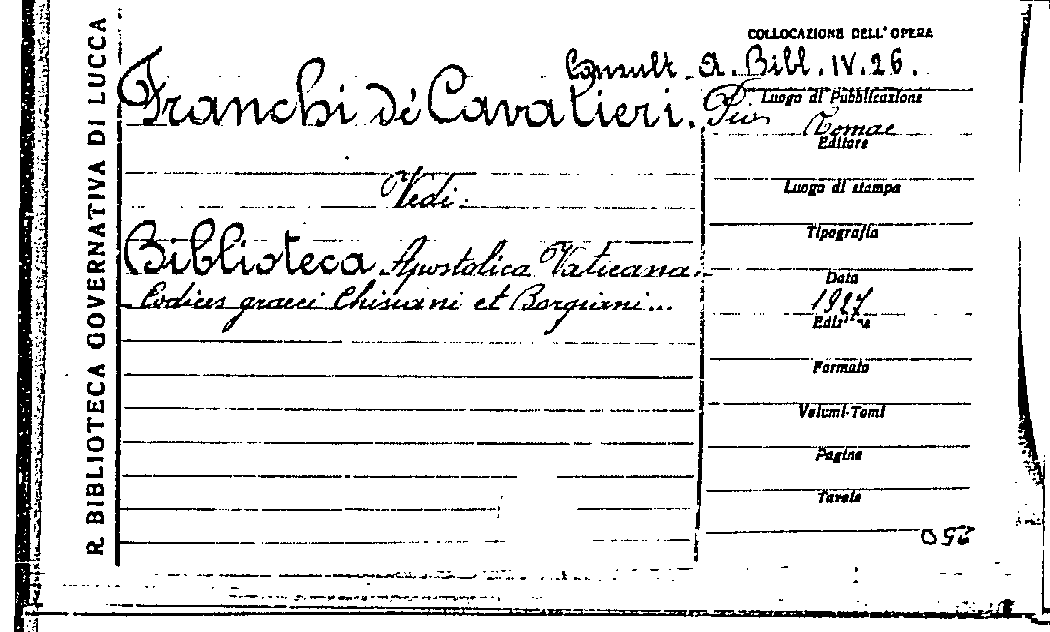 R. BIBLIOTECA GOVERNATIVA DI LUCCA
COLLOCAZIONE DELL'OPERA
Consult. A. Bibl. IV. 26.
Franchi de' Cavalieri. Pio
Luogo di Pubblicazione
Romae
Editore
Vedi:
Luogo di stampa
Tipografia
Biblioteca Apostolica Vaticana.
Codices graeci Chisiani et Borgiani...
Data
1927
Edizione
Formato
Volumi-Tomi
Pagine
Tavole